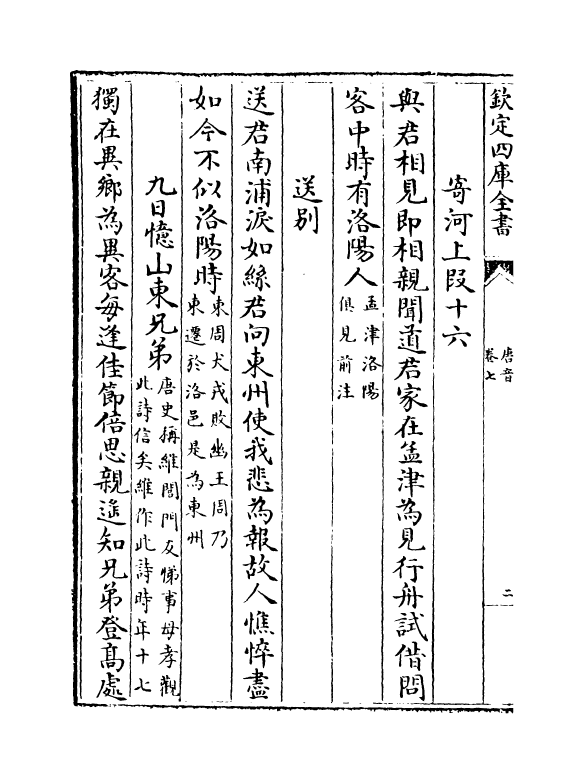 欽定四庫全書
唐音
卷七
二
寄河上段十六
與君相見即相親聞道君家在孟津為見行舟試借問
客中時有洛陽人孟津洛陽
俱見前注
送别
送君南浦淚如絲君向東州使我悲為報故人憔悴盡
如今不似洛陽時東周犬戎敗幽王周乃
東遷於洛邑是為東州
九日憶山東兄弟唐史稱維閨門友悌事母孝觀
此詩信矣維作此詩時年十七
獨在異鄉為異客每逢佳節倍思親遥知兄弟登高處